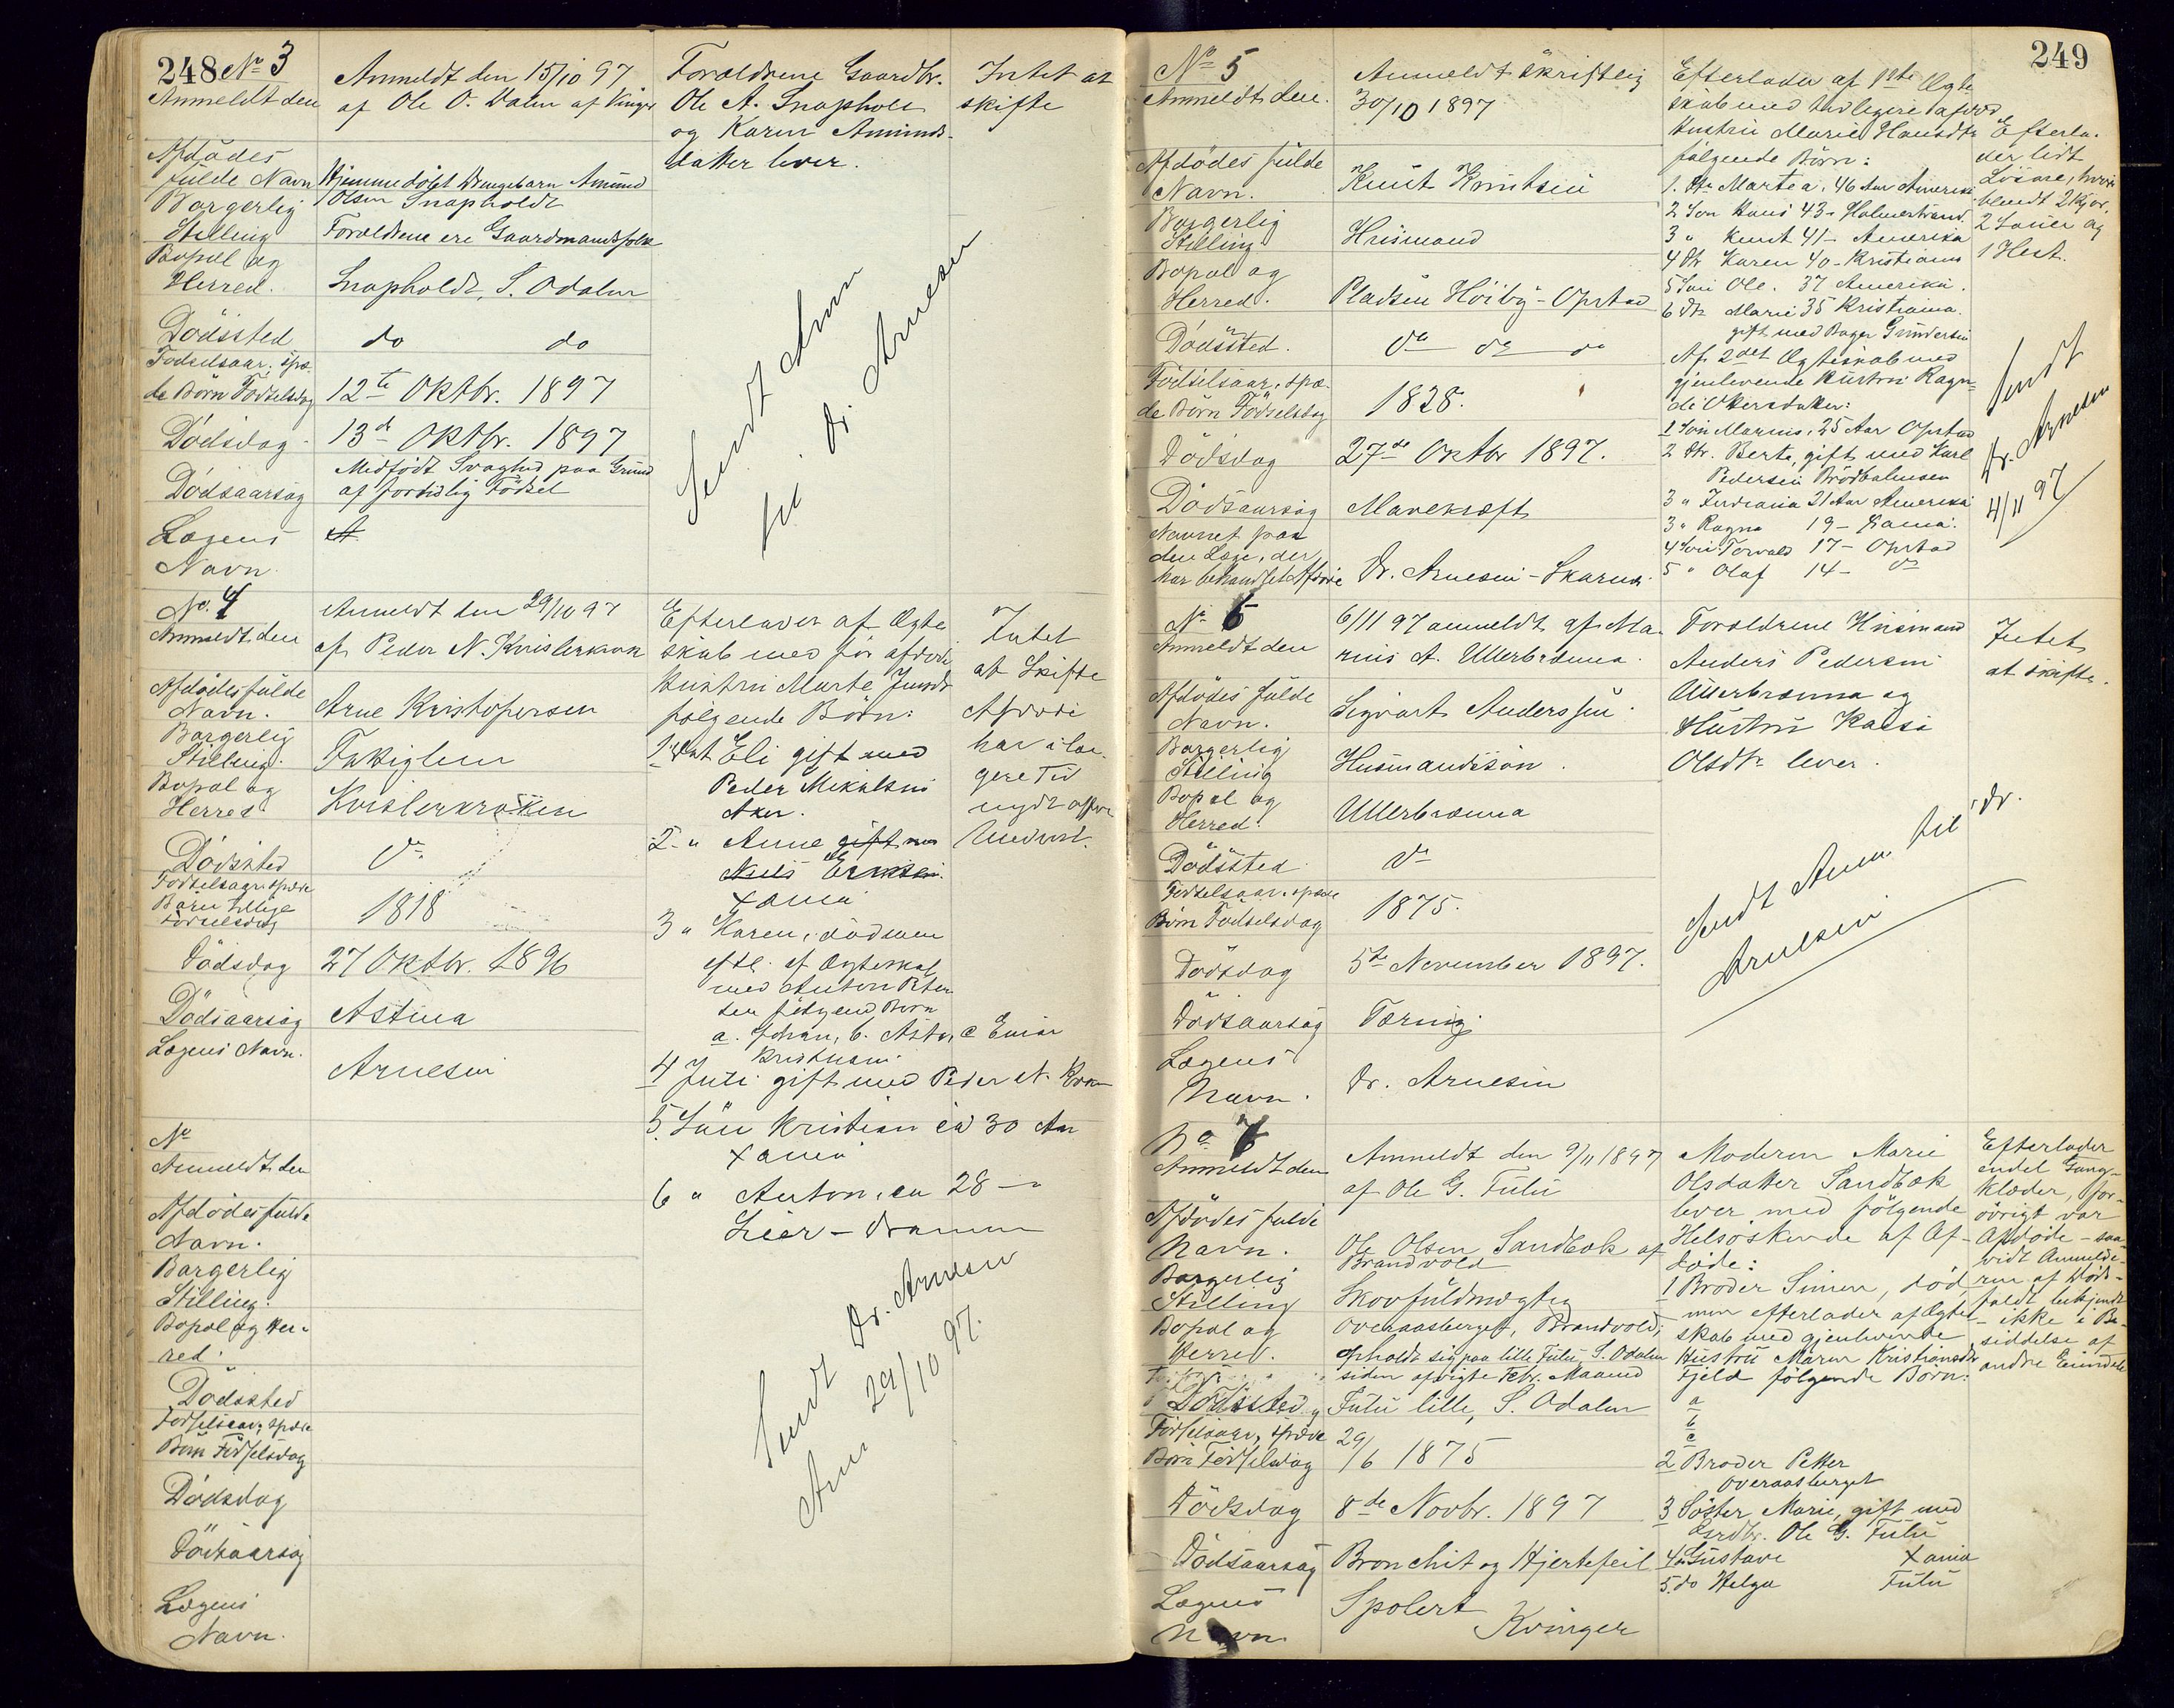 248 No 3
Anmeldt den
Anmeldt den 15/10 97
af Ole O. Dalen af Vinger
Forældrene Gaardbr.
Ole A. Snapholt
og Karen Amunds-
datter lever.
Intet at
skifte
Afdødes
fulde Navn
Hjemmedøbt Drengebarn Amund
Olsen Snapholdt
Borgerlig
Stilling
Forældrene ere Gaardmandsfolk
Bopæl og
Herred.
Snapholdt, S. Odalen
Dödssted
do do
Födselsaar, spæ-
de Börn Födselsdag
12te Oktbr. 1897
Dödsdag
13de Oktbr. 1897
Dödsaarsag
Medfödt Svaghed paa Grund
af fortidlig Födsel
Lægens
Navn.
Sendt Anm
til Dr. Arnesen
No. 4
Anmeldt den
Anmeldt den 29/10 97
af Peder N. Kvislerkroken
Efterlader af Ægte
skab med för afdöde
Hustru Marte Junsdr
fölgende Börn:
1 Dat Eli gift med
Peder Mikalsen
Aker.
2 " Anne gift med
Niels Eriksen.
Xania
3 " Karen, död men
eftl. af Ægteskab
med Anton Peter
sen fölgende Börn
a. Johan, b. Asta, c Einar
Kristiania.
4 Juli gift med Peder N. Kroken
5. Sön Kristian ca 30 Aar
Xania
6 " Anton, ca 28 — "
Lier – Drammen
Intet
at Skifte
Afdöde
har i læn
gere Tid
nydt offen
Underst.
Afdödes fulde
Navn.
Arne Kristofersen
Borgerlig
Stilling.
Fattiglem
Bopæl og
Herred.
Kvislerkroken
Dödssted
do
Födselsaar, spæde
Börn tillige
Födselsdag
1818
Dödsdag
27 Oktbr. 1896
Dödsaarsag
Astma
Lægens Navn.
Arnesen
Sendt Dr. Arnesen
Anm 29/10 97.
No
Anmeldt den
Afdödes fulde
Navn.
Borgerlig
Stilling.
Bopæl og Her-
red.
Dödssted
Födselsaar, spæde
Börn Födselsdag
Dödsdag
Dödsaarsag
Lægens
Navn.
249
No 5
Anmeldt den.
Anmeldt skriftlig
30/10 1897
Efterlader af 1ste Ægte
skab med tidligere afdöd
Hustru Marie Hansdtr
fölgende Börn:
1. Dtr Martea, 46 Aar Amerika
2 Sön Hans 43 – Holmestrand.
3 " Knut 41 – Amerika
4 Dtr Karen 40 – Kristiania
5 Sön Ole. 37 Amerika.
6 Dtr Marie 35 Kristiania.
gift med Bager Gundersen
Af 2det Ægteskab med
gjenlevende Hustru Ragn-
di Olersdatter:
1 Sön Marius, 25 Aar Opstad
2 Dtr. Berte, gift med Karl
Pedersen Brödbölmosen
3 " Indiana 21 Aar Amerika
3 " Ragna 19 – Xania.
4 Sön Torvald 17 – Opstad
5 " Olaf 14 – do
Efterla-
der lidt
Lösöre, hvori
blandt 2 Kjör,
2 Sauer og
1 Hest.
Sendt
Dr. Arnesen
4/11 97
Afdödes fulde
Navn.
Knut Knutsen
Borgerlig
Stilling
Husmand
Bopæl og
Herred.
Pladsen Höiby – Opstad
Dödssted.
do do do
Födselsaar, spæ-
de Börn Födselsdag
1828.
Dödsdag
27de Oktbr 1897.
Dödsaarsag
Mavekræft
Navnet paa
den Læge, der
har behandlet Afdöde
Dr. Arnesen – Skarnes.
No 6
Anmeldt den
6/11 97 anmeldt af Ma-
rius A. Ullerbrænna.
Forældrene Husmand
Anders Pedersen
Ullerbrænna og
Hustru Kaisi
Olsdtr lever.
Intet
at skifte.
Afdödes fulde
Navn.
Sigvart Anderssen
Borgerlig
Stilling
Husmandssön.
Bopæl og
Herred.
Ullerbrænna
Dödssted.
do
Födselsaar, spæde
Börn Födselsdag
1875.
Dödsdag
5te November 1897.
Dödsaarsag
Tæring
Lægens
Navn.
Dr. Arnesen
Sendt Anm. til Dr.
Arnesen
No 6
Anmeldt den
Anmeldt den 9/11 1897
af Ole G. Fulu
Moderen Marie
Olsdatter Sandbæk
lever med fölgende
Helsöskende af Af-
döde:
1 Broder Simen, död,
men efterlader af Ægte
skab med gjenlevende
Hustru Maren Kristiansdtr
Fjeld fölgende Börn:
a
b
c
2 Broder Petter
Overaasberget
3 Söster Marie, gift med
Grdbr. Ole G. Fulu
4 Gustave Xania
5. do Helga Fulu
Efterlader
endel Gang-
klæder, for-
övrigt var
Afdöde – saa-
vidt Anmelde-
ren af Döds-
faldt bekjendt
– ikke i Be-
siddelse af
andre Eiendele
Afdödes fulde
Navn.
Ole Olsen Sandbæk af
Brandvold
Borgerlig
Stilling
Skovfuldmægtig
Bopæl og
Herred.
Overaasberget, Brandvold;
opholdt sig paa lille Fulu S. Odalen
siden afvigte Febr. Maaned
Dödssted
Fulu lille, S. Odalen
Födselsaar, spæde
Börn Födselsdag
29/6 1875
Dödsdag
8de Novbr. 1897
Dödsaarsag
Bronchit og Hjertefeil
Lægens
Navn
Spolert
Kvinger